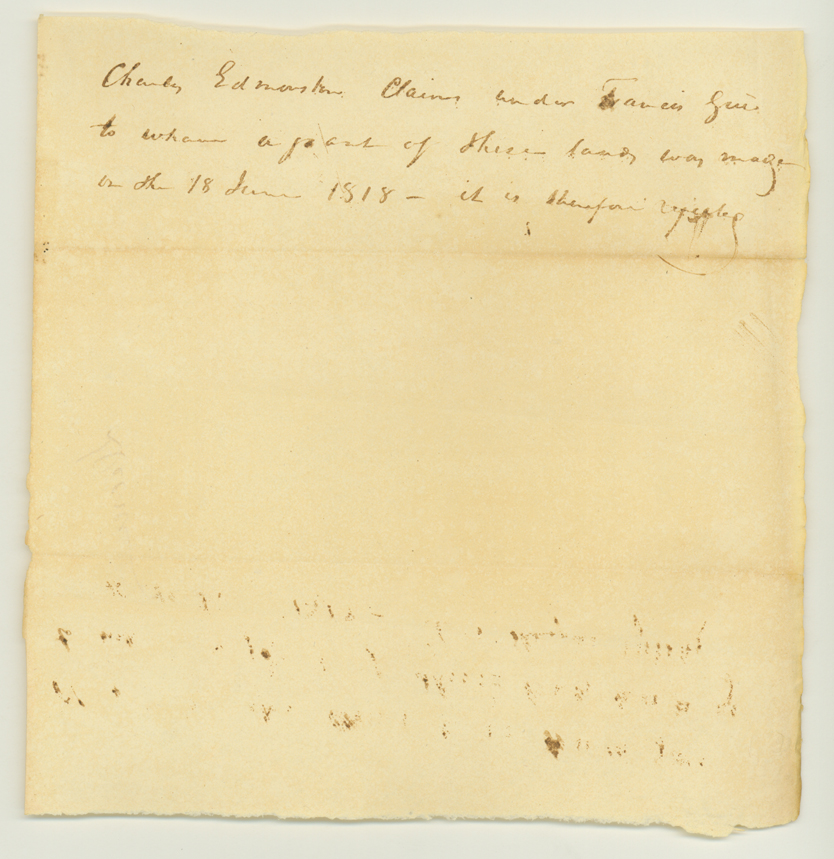 Charles Edmonston Claims under Francis
to whom a grant of these lands was made
on the 18 June 1818 – it is therefore